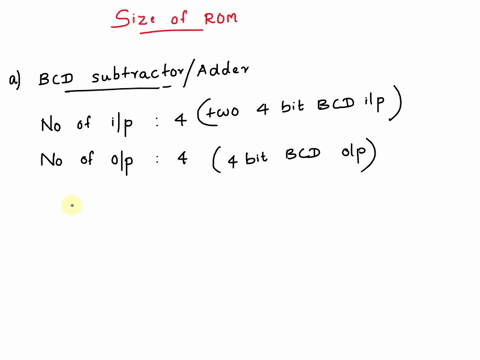 Size of ROM
a) BCD subtractor/Adder
No of i/p : 4 (two 4 bit BCD i/p)
No of o/p : 4 (4 bit BCD o/p)